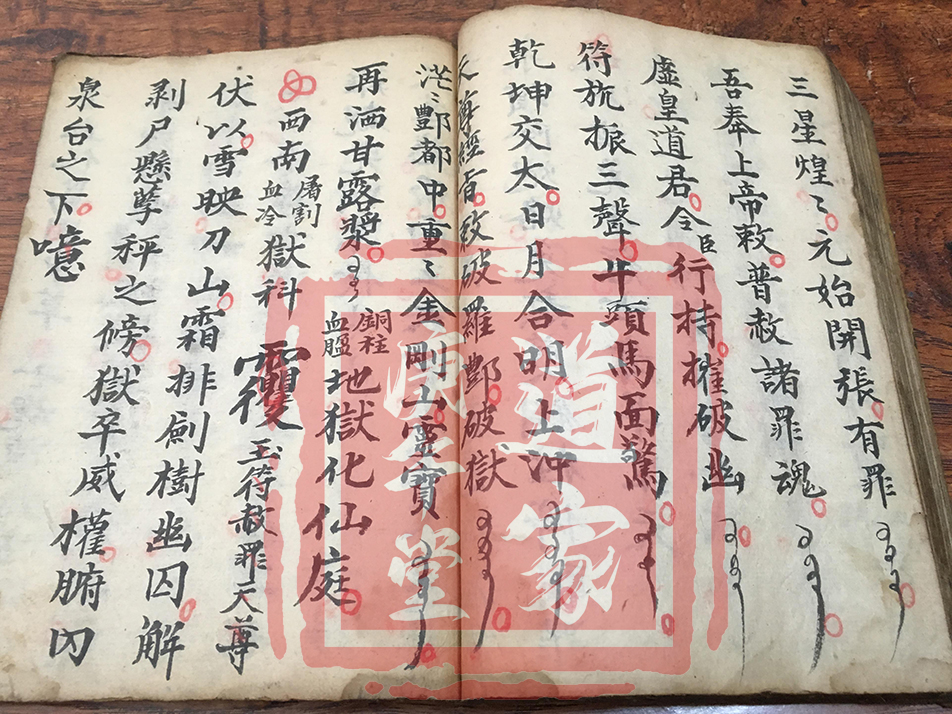 三星煌〻元始開張有罪
吾奉上帝敕普赦諸罪魂
虛皇道君令臣行持權破幽
符旂振三聲牛頭馬面驚
乾坤交太日月合明上沖
天尊經旨敕破羅酆破獄
茫〻酆都中重〻金剛山靈寶
再洒甘露漿銅柱血地獄化仙庭
西南屠割血冷獄科玉符赦罪天尊
伏以雪映刀山霜排劍樹幽囚解
剥尸懸孽秤之傍獄卒威權腑肉
泉台之下噫
道家
堂